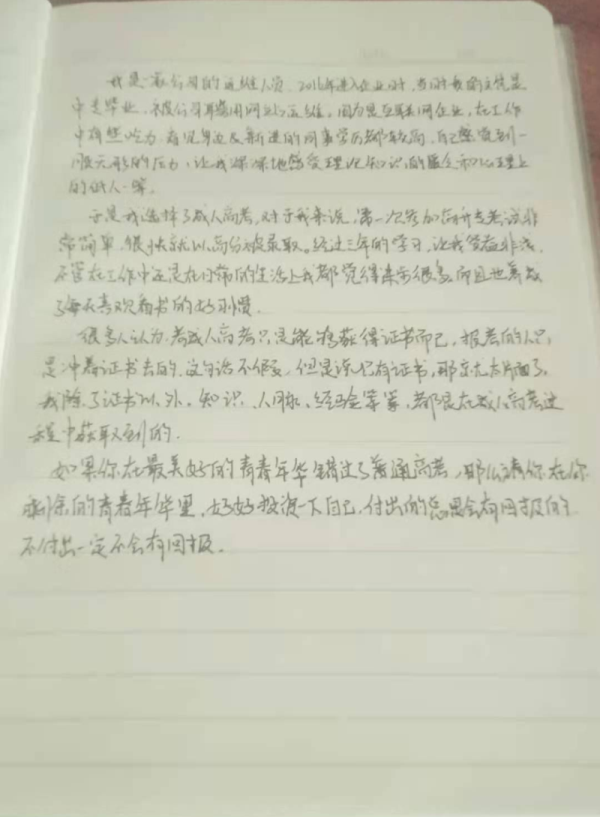 我是一家公司的运维人员，2016年进入企业时，当时我的文凭是
中专毕业，被公司聘用网站运维，因为是互联网企业，在工作
中有些吃力，看见身边及新进的同事学历都较高，自己感觉到一
股无形的压力，让我深深地感受理论知识的匮乏和心理上
的低人一等。
于是我选择了成人高考，对于我来说，第一次参加高升专考试非
常简单，很快就以高分被录取。经过三年的学习，让我受益非浅，
不管在工作中还是在的生活上我都觉得进步很多，而且也养成
了每天喜欢看书的好习惯。
很多人认为考成人高考只是能够获得证书而已，报考的人只
是冲着证书去的，这句话不假，但是说只有证书，那就太片面了，
我除了证书以外，知识、人脉、经验等等，都是在成人高考过
程中获取到的。
如果你在最美好的青春年华错过了普通高考，那么请你在你
剩余的青春年华里，好好投资一下自己，付出的总是会有回报的，
不付出一定不会有回报。